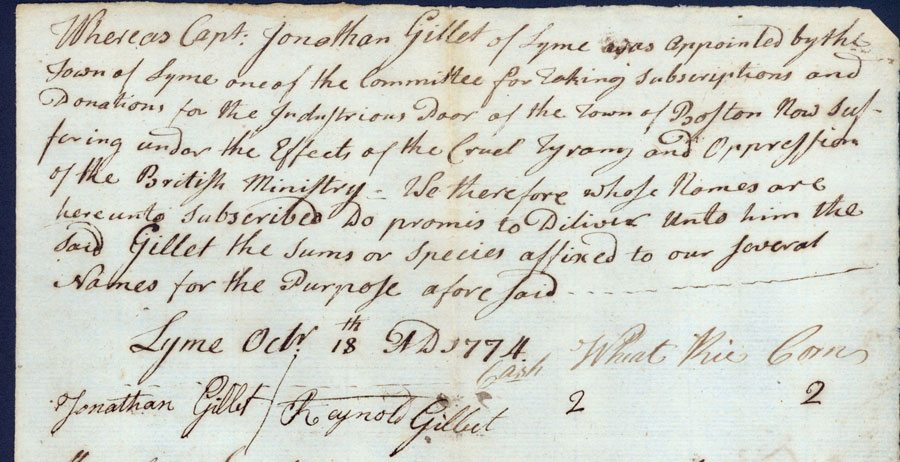 Whereas Capt: Jonathan Gillet of Lyme was appointed by the
Town of Lyme one of the Committee for taking Subscriptions and
Donations for the Industrious Poor of the Town of Boston Now Suf-
fering under the Effects of the Cruel Tyrany and Oppression
of the British Ministry - We therefore whose Names are
hereunto Subscribed Do promis to Diliver Unto him the
said Gillet the Sums or Species affixed to our several
Names for the Purpose afore said
Lyme Octr 18th AD 1774 Cash Wheat Rie Corn
Jonathan Gillet Reynold Gillet 2 2